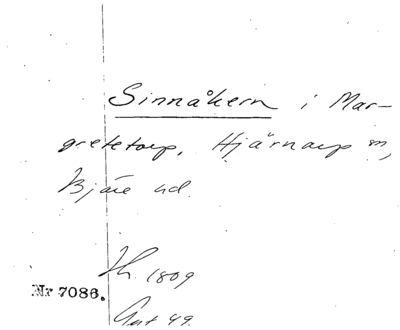 Sinnåkern i Mar-
gretetorp, Hjärnarp sn,
Bjäre hd.
Th. 1809
Nr 7086.
49.